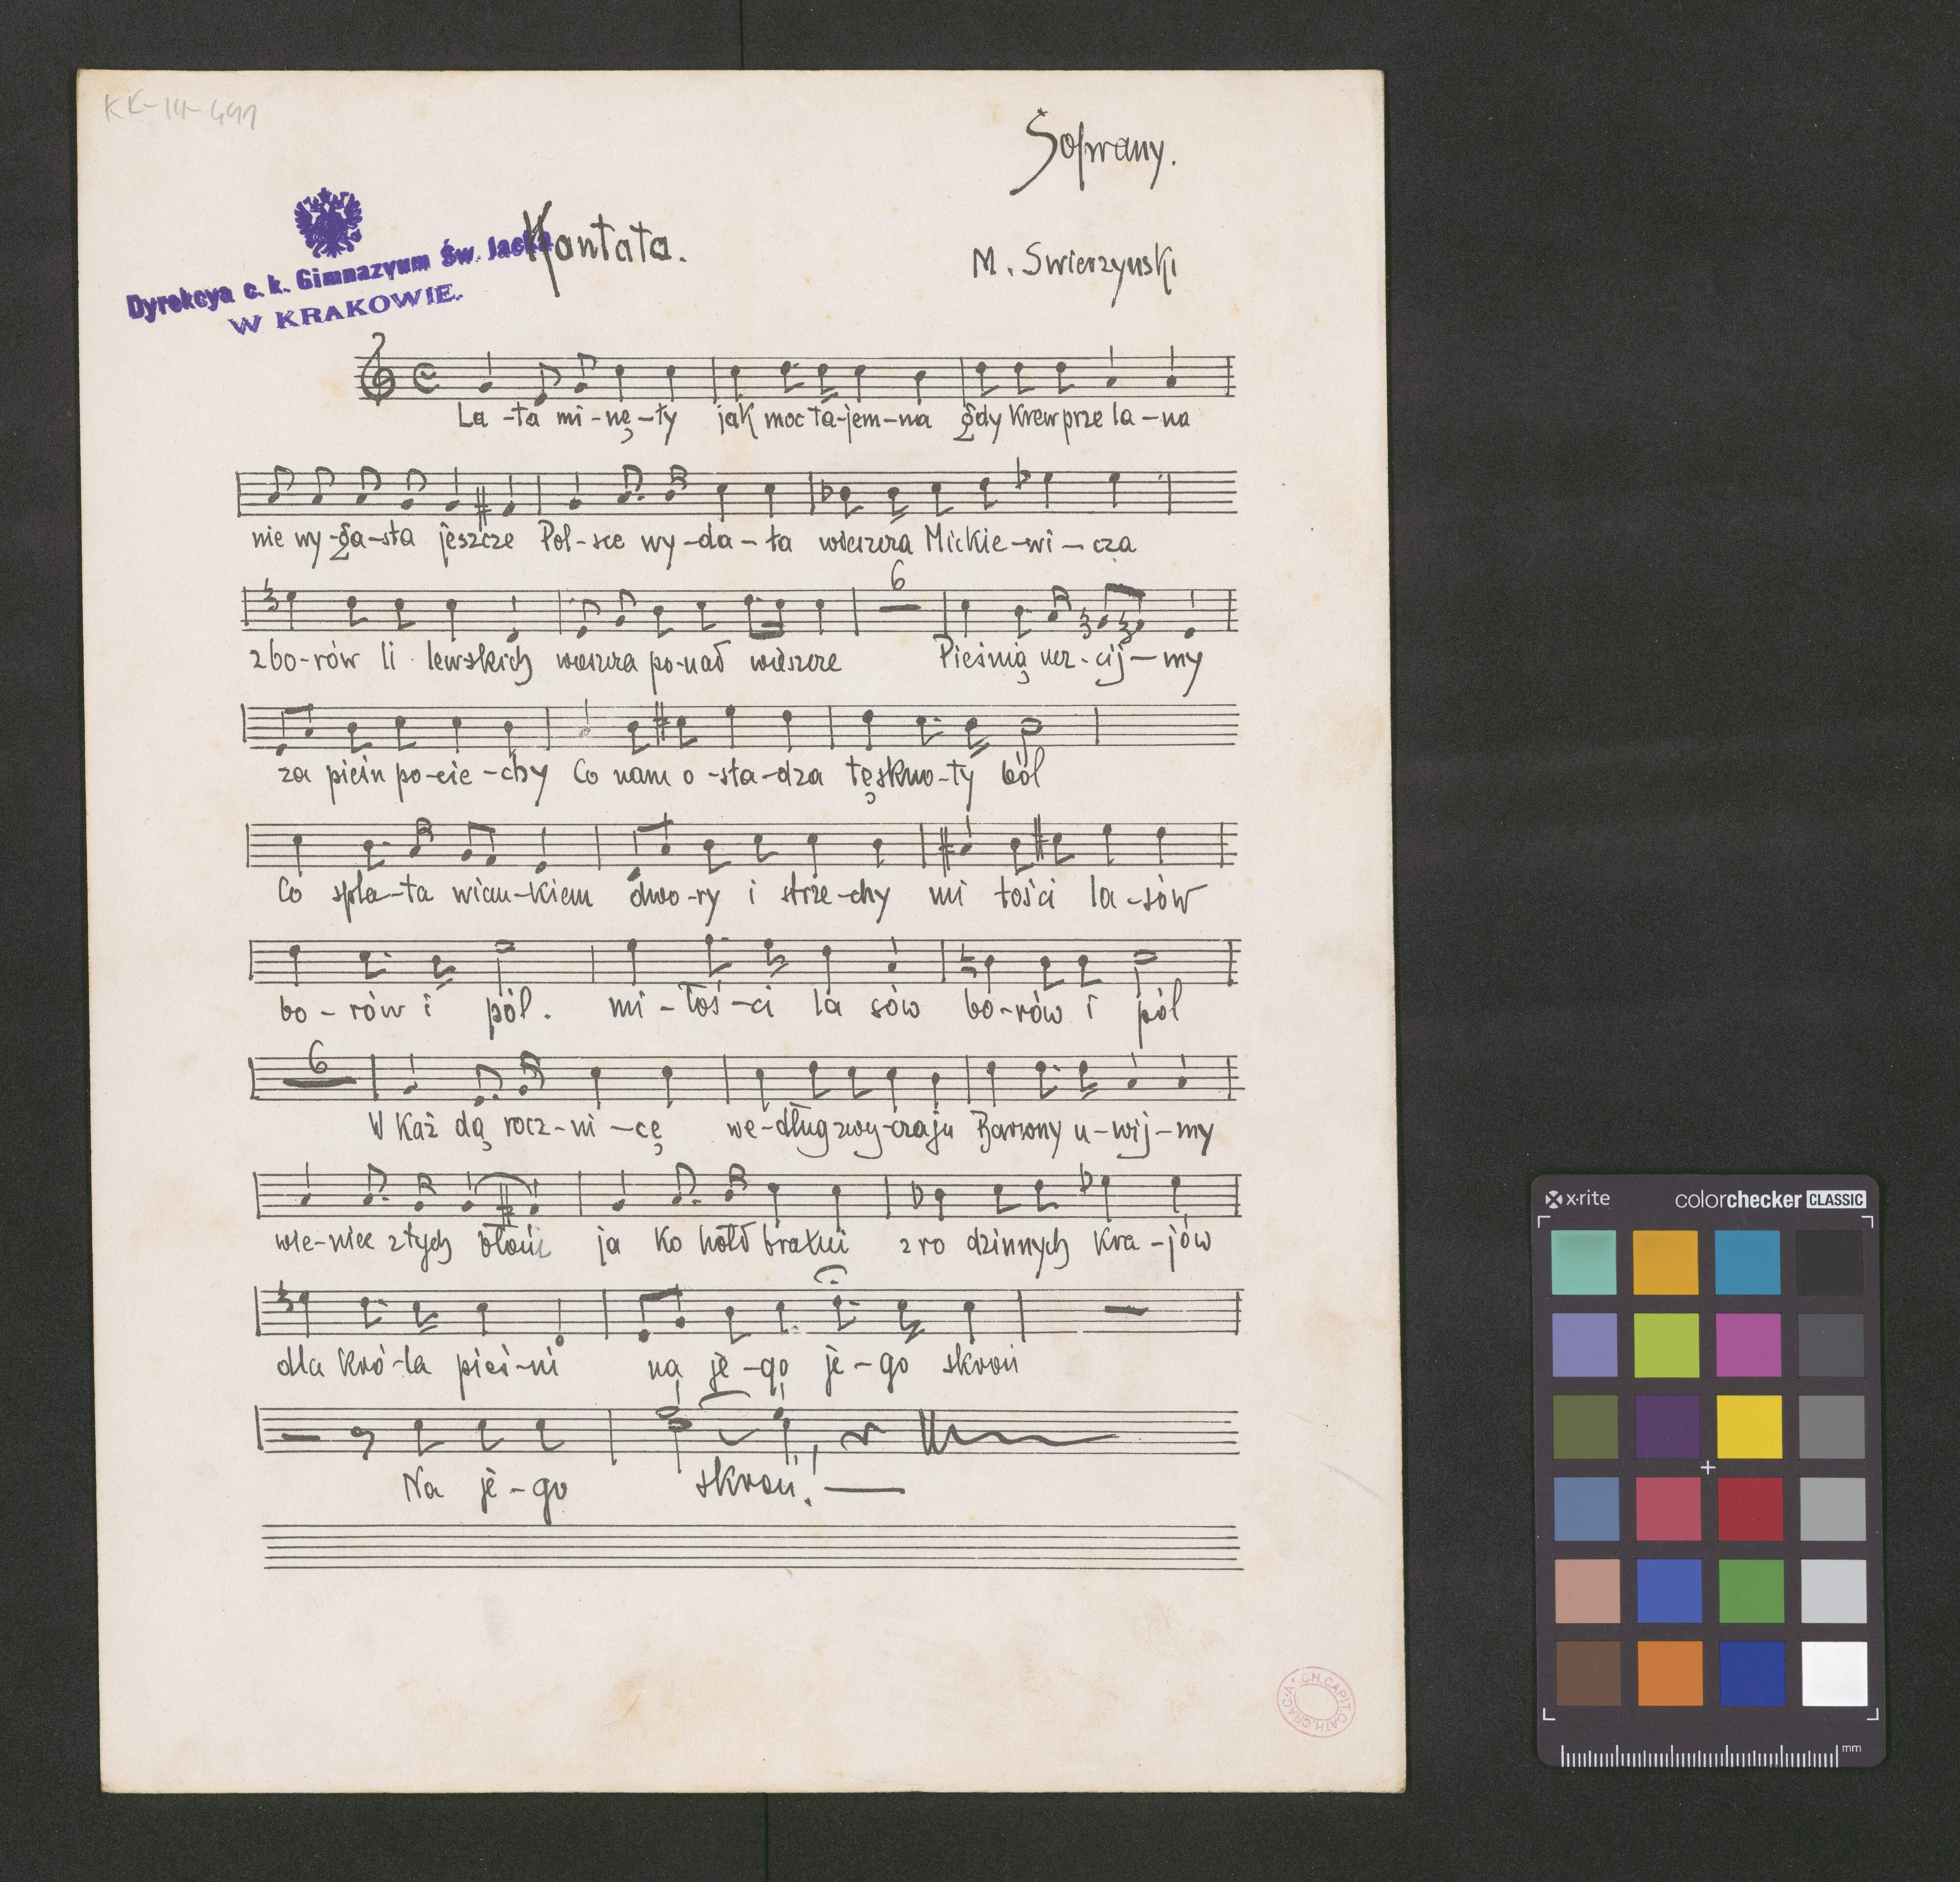 KK-14-491
Soprany.
Kantata.
M. Swierzyński
Dyrekcya c. k. Gimnazyum Św. Jacka
W KRAKOWIE.
La-ta mi-nę-ły jak moc ta-jem-na gdy krew prze la-na
nie wy-ga-sła jeszcze Pol-sce wy-da-ła wieszcza Mickie-wi-cza
6
zbo-rów li lewskich wieszcza po-nad wieszcze Pieśnią ucz-cij-my
za pieśn po-cie-chy Co nam o-sła-dza tęskno-ty ból
Co spla-ta wian-kiem dwo-ry i strze-chy mi łości la-sów
bo-rów i pól. mi-łoś-ci la sów bo-rów i pól
6
W Każ dą rocz-ni-cę we-dług zwy-czaju Barwny u-wij-my
wie-niec z tych błoń ja ko hołd bratni z ro dzinnych kra-jów
dla kró-la pieś-ni na je-go je-go skroń
Na je-go skroń!
ARCH. CAPIT. CATH. CRAC.
x-rite colorchecker CLASSIC
mm